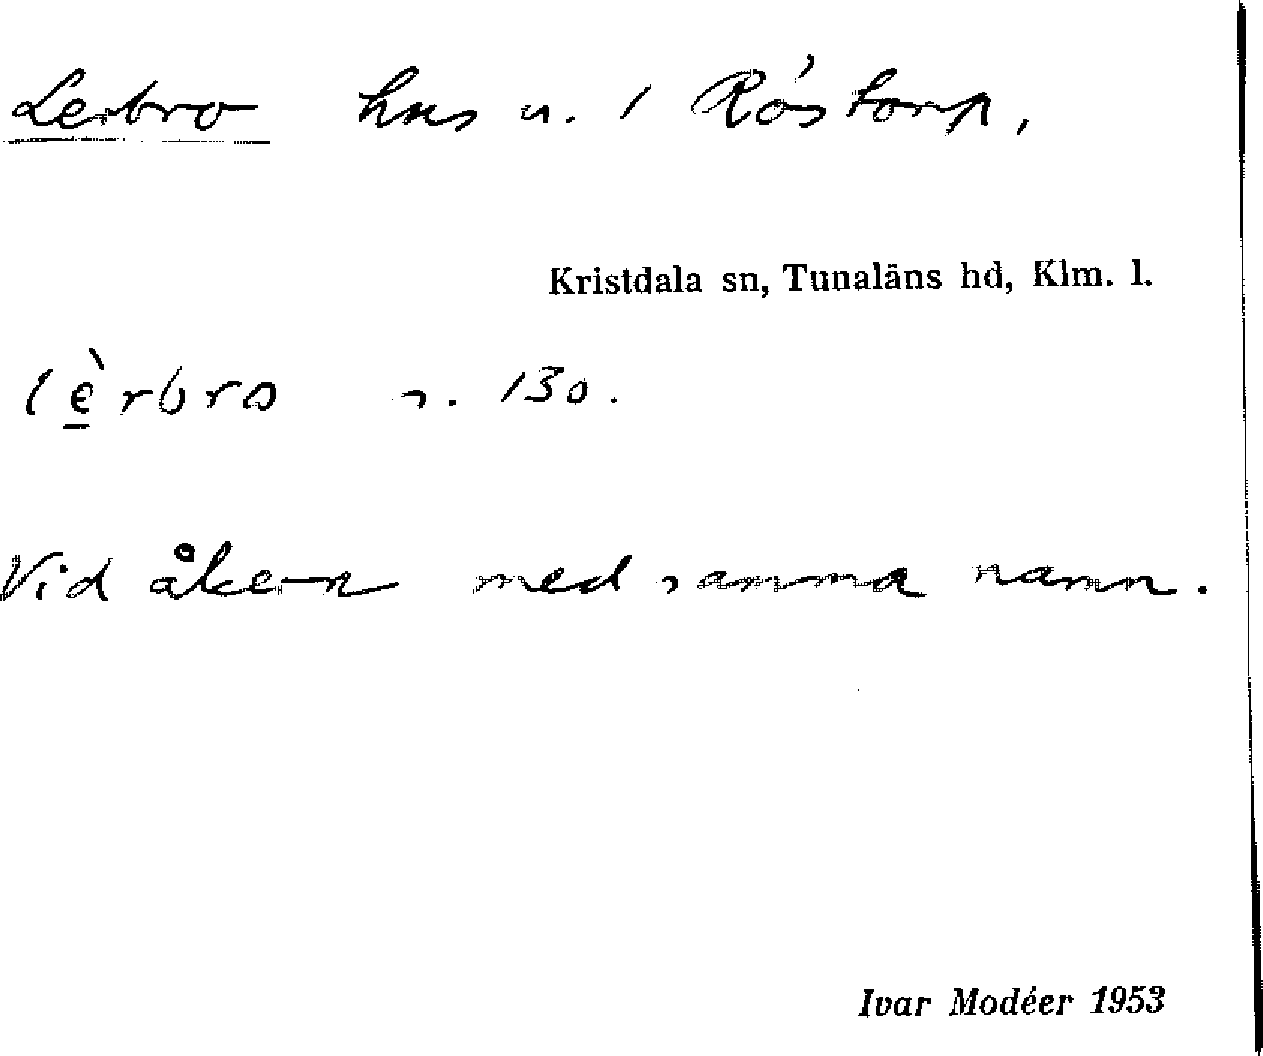 Lerbro hus u. / Róstorp,
Kristdala sn, Tunaläns hd, Klm. l.
lèrbro n. 130.
Vid åkern med samma namn.
Ivar Modéer 1953